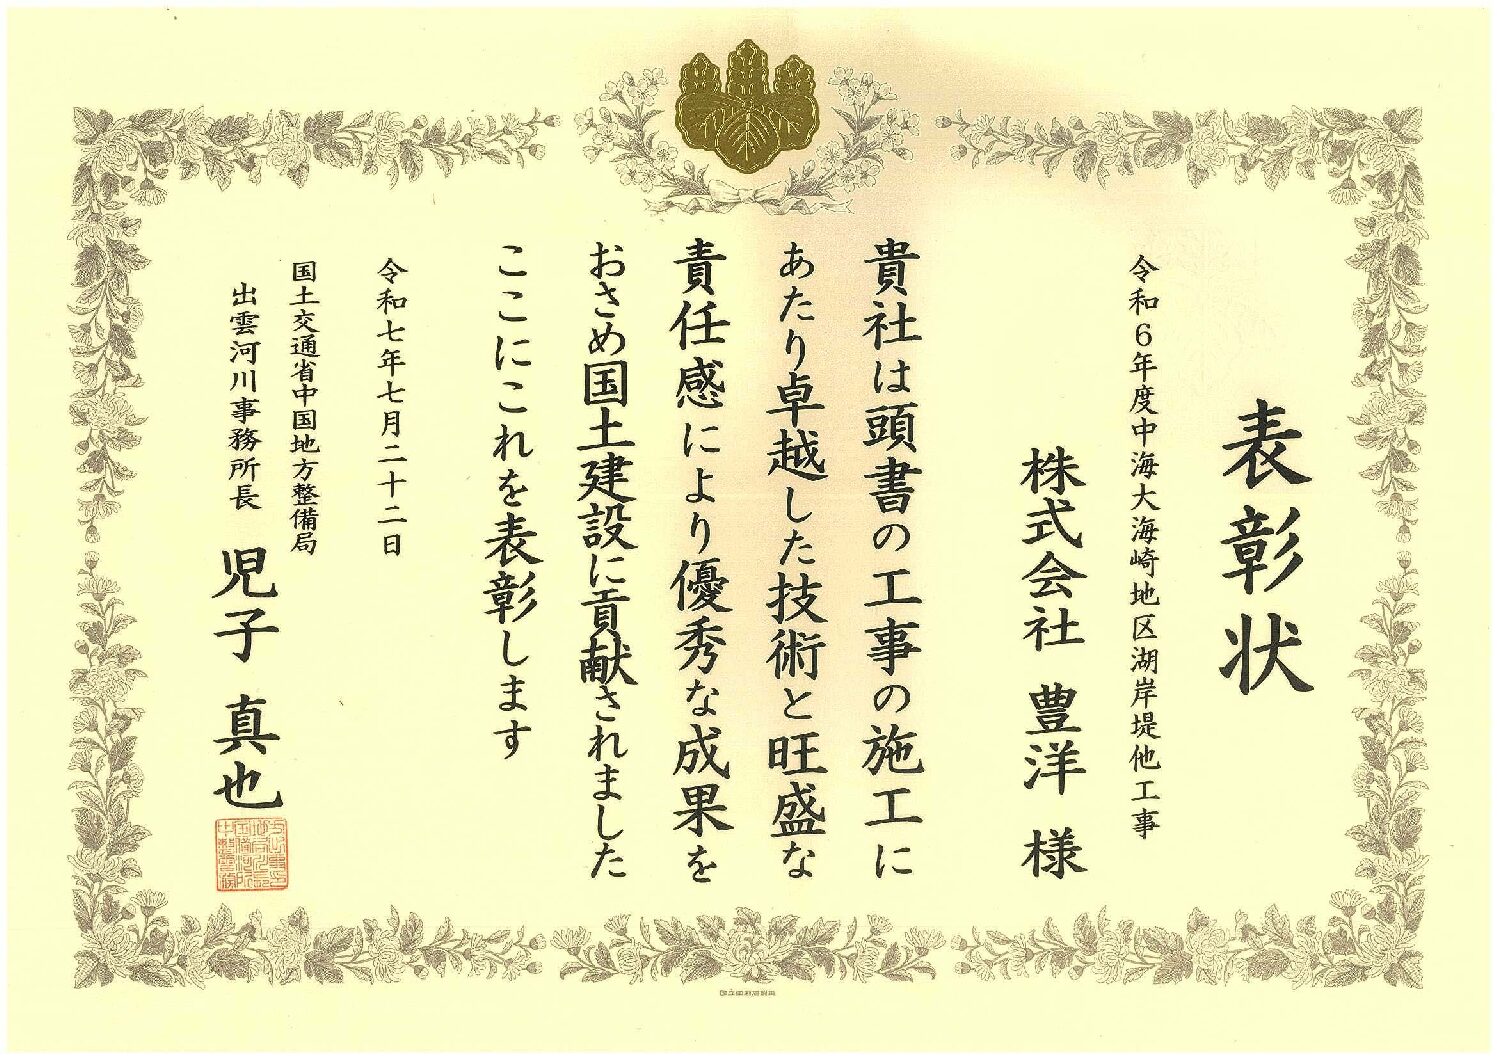 表彰状
令和6年度中海大海崎地区湖岸堤他工事
株式会社 豊洋 様
貴社は頭書の工事の施工に
あたり卓越した技術と旺盛な
責任感により優秀な成果を
おさめ国土建設に貢献されました
ここにこれを表彰します
令和七年七月二十二日
国土交通省中国地方整備局
出雲河川事務所長 児子 真也